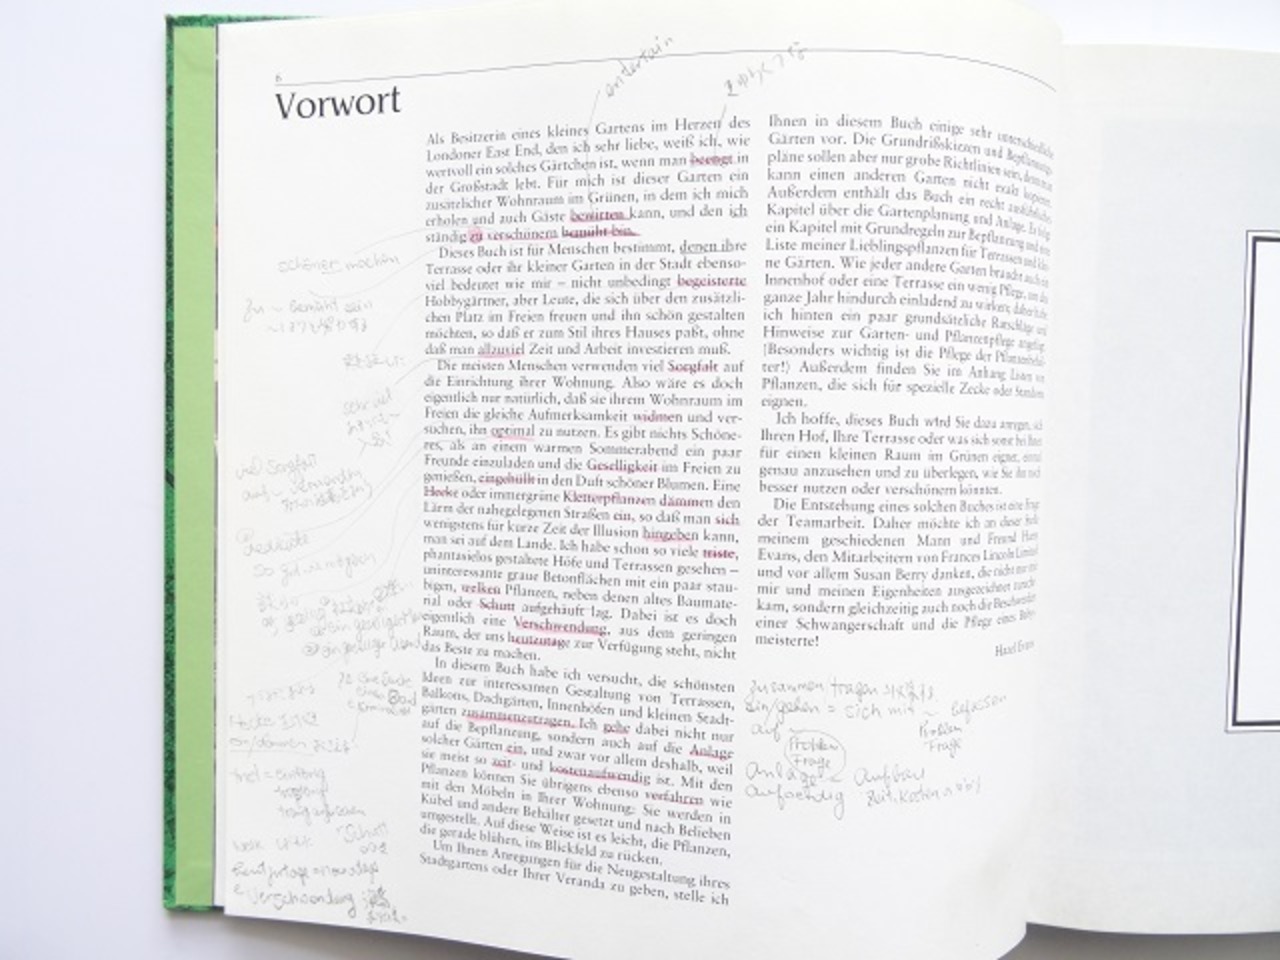 6
Vorwort
entertain
Als Besitzerin eines kleines Gartens im Herzen des
Londoner East End, den ich sehr liebe, weiß ich, wie
wertvoll ein solches Gärtchen ist, wenn man beengt in
der Großstadt lebt. Für mich ist dieser Garten ein
zusätzlicher Wohnraum im Grünen, in dem ich mich
erholen und auch Gäste bewirten kann, und den ich
ständig zu verschönern bemüht bin.
Dieses Buch ist für Menschen bestimmt, denen ihre
Terrasse oder ihr kleiner Garten in der Stadt ebenso-
viel bedeutet wie mir – nicht unbedingt begeisterte
Hobbygärtner, aber Leute, die sich über den zusätzli-
chen Platz im Freien freuen und ihn schön gestalten
möchten, so daß er zum Stil ihres Hauses paßt, ohne
daß man allzuviel Zeit und Arbeit investieren muß.
Die meisten Menschen verwenden viel Sorgfalt auf
die Einrichtung ihrer Wohnung. Also wäre es doch
eigentlich nur natürlich, daß sie ihrem Wohnraum im
Freien die gleiche Aufmerksamkeit widmen und ver-
suchen, ihn optimal zu nutzen. Es gibt nichts Schöne-
res, als an einem warmen Sommerabend ein paar
Freunde einzuladen und die Geselligkeit im Freien zu
genießen, eingehüllt in den Duft schöner Blumen. Eine
Hecke oder immergrüne Kletterpflanzen dämmen den
Lärm der nahegelegenen Straßen ein, so daß man sich
wenigstens für kurze Zeit der Illusion hingeben kann,
man sei auf dem Lande. Ich habe schon so viele triste,
phantasielos gestaltete Höfe und Terrassen gesehen –
uninteressante graue Betonflächen mit ein paar stau-
bigen, welken Pflanzen, neben denen altes Baumate-
rial oder Schutt aufgehäuft lag. Dabei ist es doch
eigentlich eine Verschwendung, aus dem geringen
Raum, der uns heutzutage zur Verfügung steht, nicht
das Beste zu machen.
In diesem Buch habe ich versucht, die schönsten
Ideen zur interessanten Gestaltung von Terrassen,
Balkons, Dachgärten, Innenhöfen und kleinen Stadt-
gärten zusammenzutragen. Ich gehe dabei nicht nur
auf die Bepflanzung, sondern auch auf die Anlage
solcher Gärten ein, und zwar vor allem deshalb, weil
sie meist so zeit- und kostenaufwendig ist. Mit den
Pflanzen können Sie übrigens ebenso verfahren wie
mit den Möbeln in Ihrer Wohnung: Sie werden in
Kübel und andere Behälter gesetzt und nach Belieben
umgestellt. Auf diese Weise ist es leicht, die Pflanzen,
die gerade blühen, ins Blickfeld zu rücken.
Um Ihnen Anregungen für die Neugestaltung ihres
Stadtgartens oder Ihrer Veranda zu geben, stelle ich
Ihnen in diesem Buch einige sehr unterschiedliche
Gärten vor. Die Grundrißskizzen und Bepflanzungs-
pläne sollen aber nur grobe Richtlinien sein, denn man
kann einen anderen Garten nicht exakt kopieren.
Außerdem enthält das Buch ein recht ausführliches
Kapitel über die Gartenplanung und Anlage. Es folgt
ein Kapitel mit Grundregeln zur Bepflanzung und eine
Liste meiner Lieblingspflanzen für Terrassen und klei-
ne Gärten. Wie jeder andere Garten braucht auch ein
Innenhof oder eine Terrasse ein wenig Pflege, um das
ganze Jahr hindurch einladend zu wirken; daher habe
ich hinten ein paar grundsätzliche Ratschläge und
Hinweise zur Garten- und Pflanzenpflege angefügt.
(Besonders wichtig ist die Pflege der Pflanzenbehäl-
ter!) Außerdem finden Sie im Anhang Listen von
Pflanzen, die sich für spezielle Zecke oder Standorte
eignen.
Ich hoffe, dieses Buch wird Sie dazu anregen, sich
Ihren Hof, Ihre Terrasse oder was sich sonst bei Ihnen
für einen kleinen Raum im Grünen eignet, einmal
genau anzusehen und zu überlegen, wie Sie ihn noch
besser nutzen oder verschönern könnten.
Die Entstehung eines solchen Buches ist eine Frage
der Teamarbeit. Daher möchte ich an dieser Stelle
meinem geschiedenen Mann und Freund Harry
Evans, den Mitarbeitern von Frances Lincoln Limited
und vor allem Susan Berry danken, die nicht nur mit
mir und meinen Eigenheiten ausgezeichnet zurecht
kam, sondern gleichzeitig auch noch die Beschwerden
einer Schwangerschaft und die Pflege eines Babys
meisterte!
Hazel Evans
schöner machen
zu ~ bemüht sein
sehr viel
viel Sorgfalt
auf ~ verwenden
so gut wie möglich
Schutt
heutzutage = nowadays
e Verschwendung
zusammen/tragen
ein/gehen = sich mit ~ befassen
auf ~
Problem
Frage
Problem
Frage
Anlage – Aufbau
aufwendig